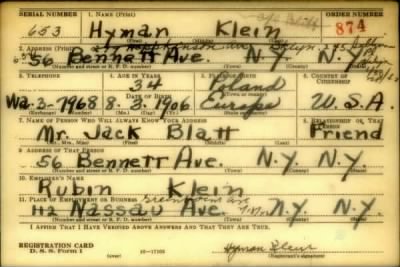 SERIAL NUMBER 1. NAME (Print) ORDER NUMBER
653 Hyman Klein 874
2. ADDRESS (Print)
56 Bennett Ave. N.Y. N.Y.
3. TELEPHONE 4. AGE IN YEARS 5. PLACE OF BIRTH 6. COUNTRY OF CITIZENSHIP
34 Poland
Wa.3-7968 8. 3. 1906 Europe U.S.A.
7. NAME OF PERSON WHO WILL ALWAYS KNOW YOUR ADDRESS 8. RELATIONSHIP OF THAT PERSON
Mr. Jack Blatt Friend
(Mr., Mrs., Miss) (First) (Middle) (Last)
9. ADDRESS OF THAT PERSON
56 Bennett Ave. N.Y. N.Y.
(Number and street or R. F. D. number) (Town) (County) (State)
10. EMPLOYER'S NAME
Rubin Klein
11. PLACE OF EMPLOYMENT OR BUSINESS
112 Nassau Ave. N.Y.
(Number and street or R. F. D. number) (Town) (County) (State)
I AFFIRM THAT I HAVE VERIFIED ABOVE ANSWERS AND THAT THEY ARE TRUE.
REGISTRATION CARD
D. S. S. Form 1 (over) 16—17105 Hyman Klein
(Registrant's signature)